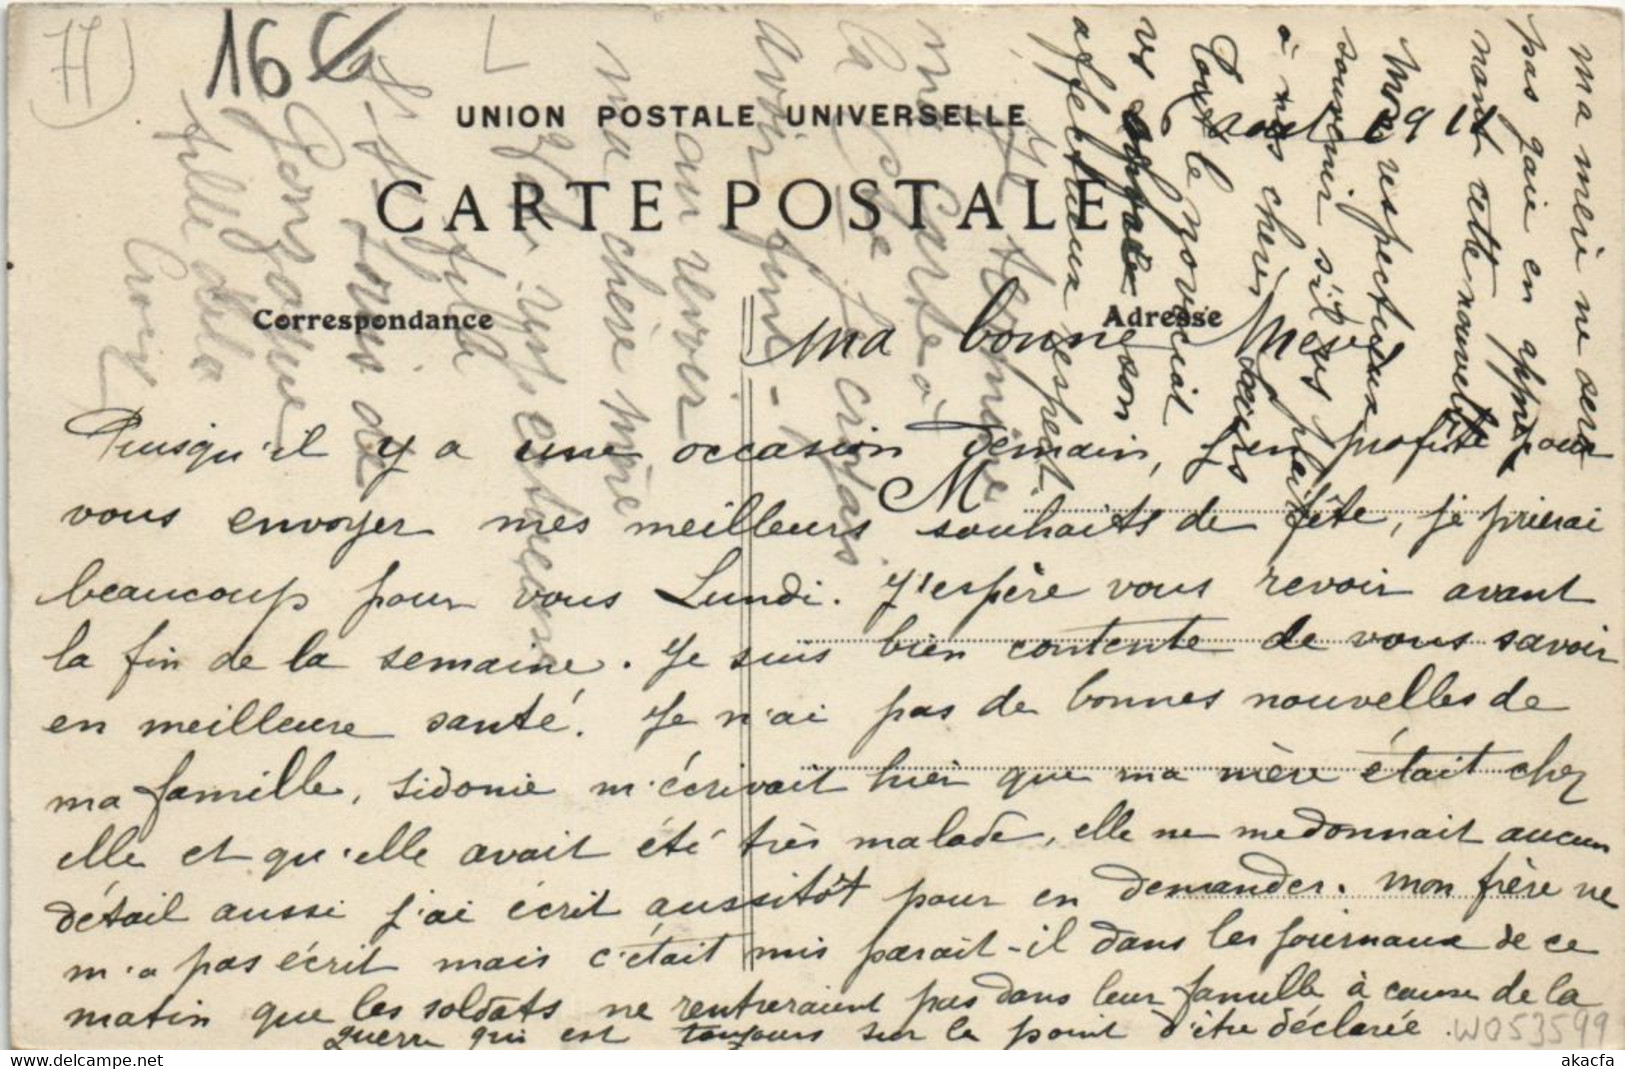 77
16
UNION POSTALE UNIVERSELLE
CARTE POSTALE
Correspondance
Adresse
M
Août 1911
ma bonne Mère
Puisqu'il y a une occasion demain, j'en profite pour
vous envoyer mes meilleurs souhaits de fête, je prierai
beaucoup pour vous Lundi. J'espère vous revoir avant
la fin de la semaine. Je suis bien contente de vous savoir
en meilleure santé. Je n'ai pas de bonnes nouvelles de
ma famille, Sidonie m'écrivait hier que ma mère était chez
elle et qu'elle avait été très malade, elle ne me donnait aucun
détail aussi j'ai écrit aussitôt pour en demander. Mon frère ne
m'a pas écrit mais c'était mis paraît-il dans les journaux de ce
matin que les soldats ne rentreraient pas dans leur famille à cause de la
guerre qui est toujours sur le point d'être déclarée.
ma mère ne sera
pas gaie en apprenant
cette nouvelle
Mon respectueux
souvenir s'il vous plaît
à mes chères Sœurs
Tout le noviciat
vs offre son
affectueux respect
ma carte à
avoir fini -
au revoir
ma chère mère
Louis de
Gonzague
fille de la
Croix
W053599
akacfa